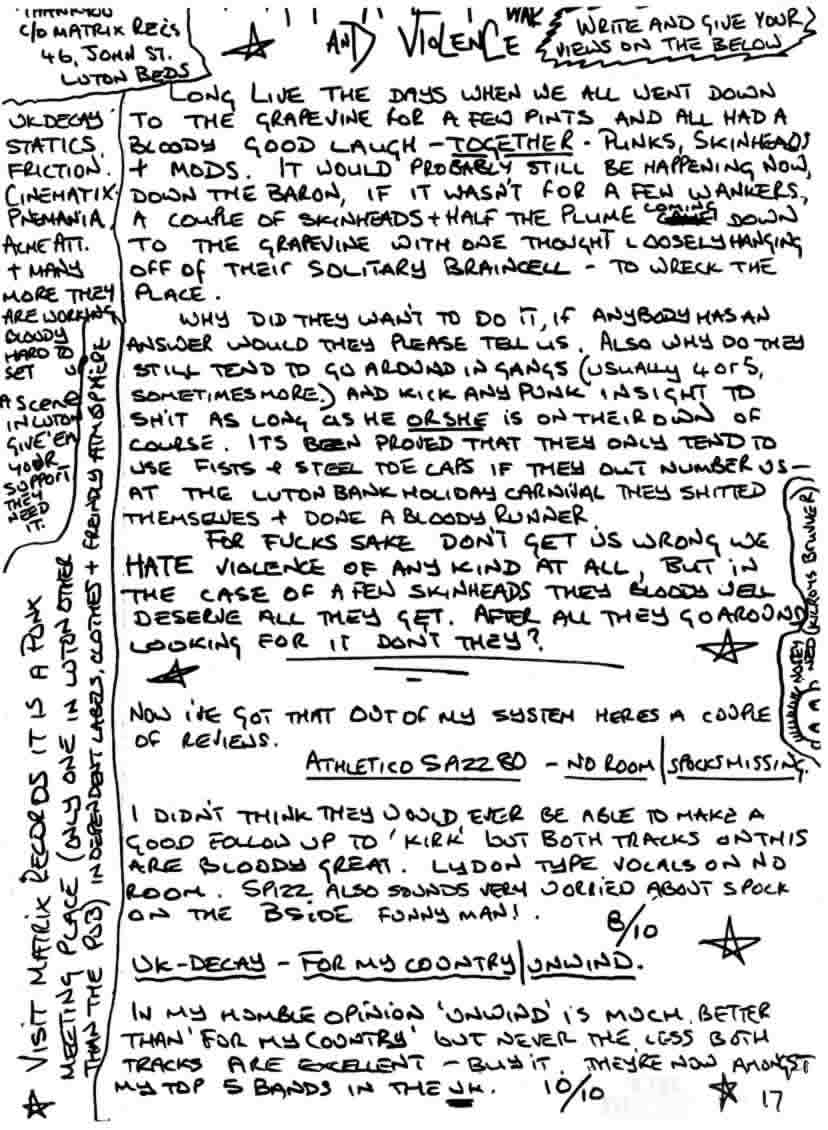 THANKYOU
C/O MATRIX REC'S
46, JOHN ST.
LUTON BEDS
AND VIOLENCE
WRITE AND GIVE YOUR
VIEWS ON THE BELOW
UK DECAY
STATICS.
FRICTION.
CINEMATIX.
PNEMANIA
ACME ATT.
+ MANY
MORE THEY
ARE WORKING
BLOODY
HARD TO
SET UP
A SCENE
IN LUTON
GIVE 'EM
YOUR
SUPPORT
THEY
NEED
IT.
LONG LIVE THE DAYS WHEN WE ALL WENT DOWN
TO THE GRAPEVINE FOR A FEW PINTS AND ALL HAD A
BLOODY GOOD LAUGH - TOGETHER - PUNKS, SKINHEADS
+ MODS. IT WOULD PROBABLY STILL BE HAPPENING NOW,
DOWN THE BARON, IF IT WASN'T FOR A FEW WANKERS,
A COUPLE OF SKINHEADS + HALF THE PLUME COMING DOWN
TO THE GRAPEVINE WITH ONE THOUGHT LOOSELY HANGING
OFF OF THEIR SOLITARY BRAINCELL - TO WRECK THE
PLACE.
WHY DID THEY WANT TO DO IT, IF ANYBODY HAS AN
ANSWER WOULD THEY PLEASE TELL US. ALSO WHY DO THEY
STILL TEND TO GO AROUND IN GANGS (USUALLY 4 OR 5,
SOMETIMES MORE.) AND KICK ANY PUNK IN SIGHT TO
SHIT AS LONG AS HE OR SHE IS ON THEIR OWN OF
COURSE. ITS BEEN PROVED THAT THEY ONLY TEND TO
USE FISTS & STEEL TOE CAPS IF THEY OUT NUMBER US -
AT THE LUTON BANK HOLIDAY CARNIVAL THEY SHITTED
THEMSELVES + DONE A BLOODY RUNNER.
FOR FUCKS SAKE DON'T GET US WRONG WE
HATE VIOLENCE OF ANY KIND AT ALL, BUT IN
THE CASE OF A FEW SKINHEADS THEY BLOODY WELL
DESERVE ALL THEY GET. AFTER ALL THEY GO AROUND
LOOKING FOR IT DON'T THEY?
NOW I'VE GOT THAT OUT OF MY SYSTEM HERES A COUPLE
OF REVIEWS.
ATHLETICO SPIZZ 80 - NO ROOM | SPOCKS MISSING.
I DIDN'T THINK THEY WOULD EVER BE ABLE TO MAKE A
GOOD FOLLOW UP TO 'KIRK' BUT BOTH TRACKS ON THIS
ARE BLOODY GREAT. LYDON TYPE VOCALS ON NO
ROOM. SPIZZ ALSO SOUNDS VERY WORRIED ABOUT SPOCK
ON THE BSIDE FUNNY MAN!.
8/10
UK-DECAY - FOR MY COUNTRY | UNWIND.
IN MY HUMBLE OPINION 'UNWIND' IS MUCH BETTER
THAN 'FOR MY COUNTRY' BUT NEVER THE LESS BOTH
TRACKS ARE EXCELLENT - BUY IT. THEY'RE NOW AMONGST
MY TOP 5 BANDS IN THE UK. 10/10
17
VISIT MATRIX RECORDS IT IS A PUNK
MEETING PLACE (ONLY ONE IN LUTON OTHER
THAN THE PUB) INDEPENDENT LABELS, CLOTHES + FREINDLY ATMOSPHERE
NEED (KILROYS BRUVVER)